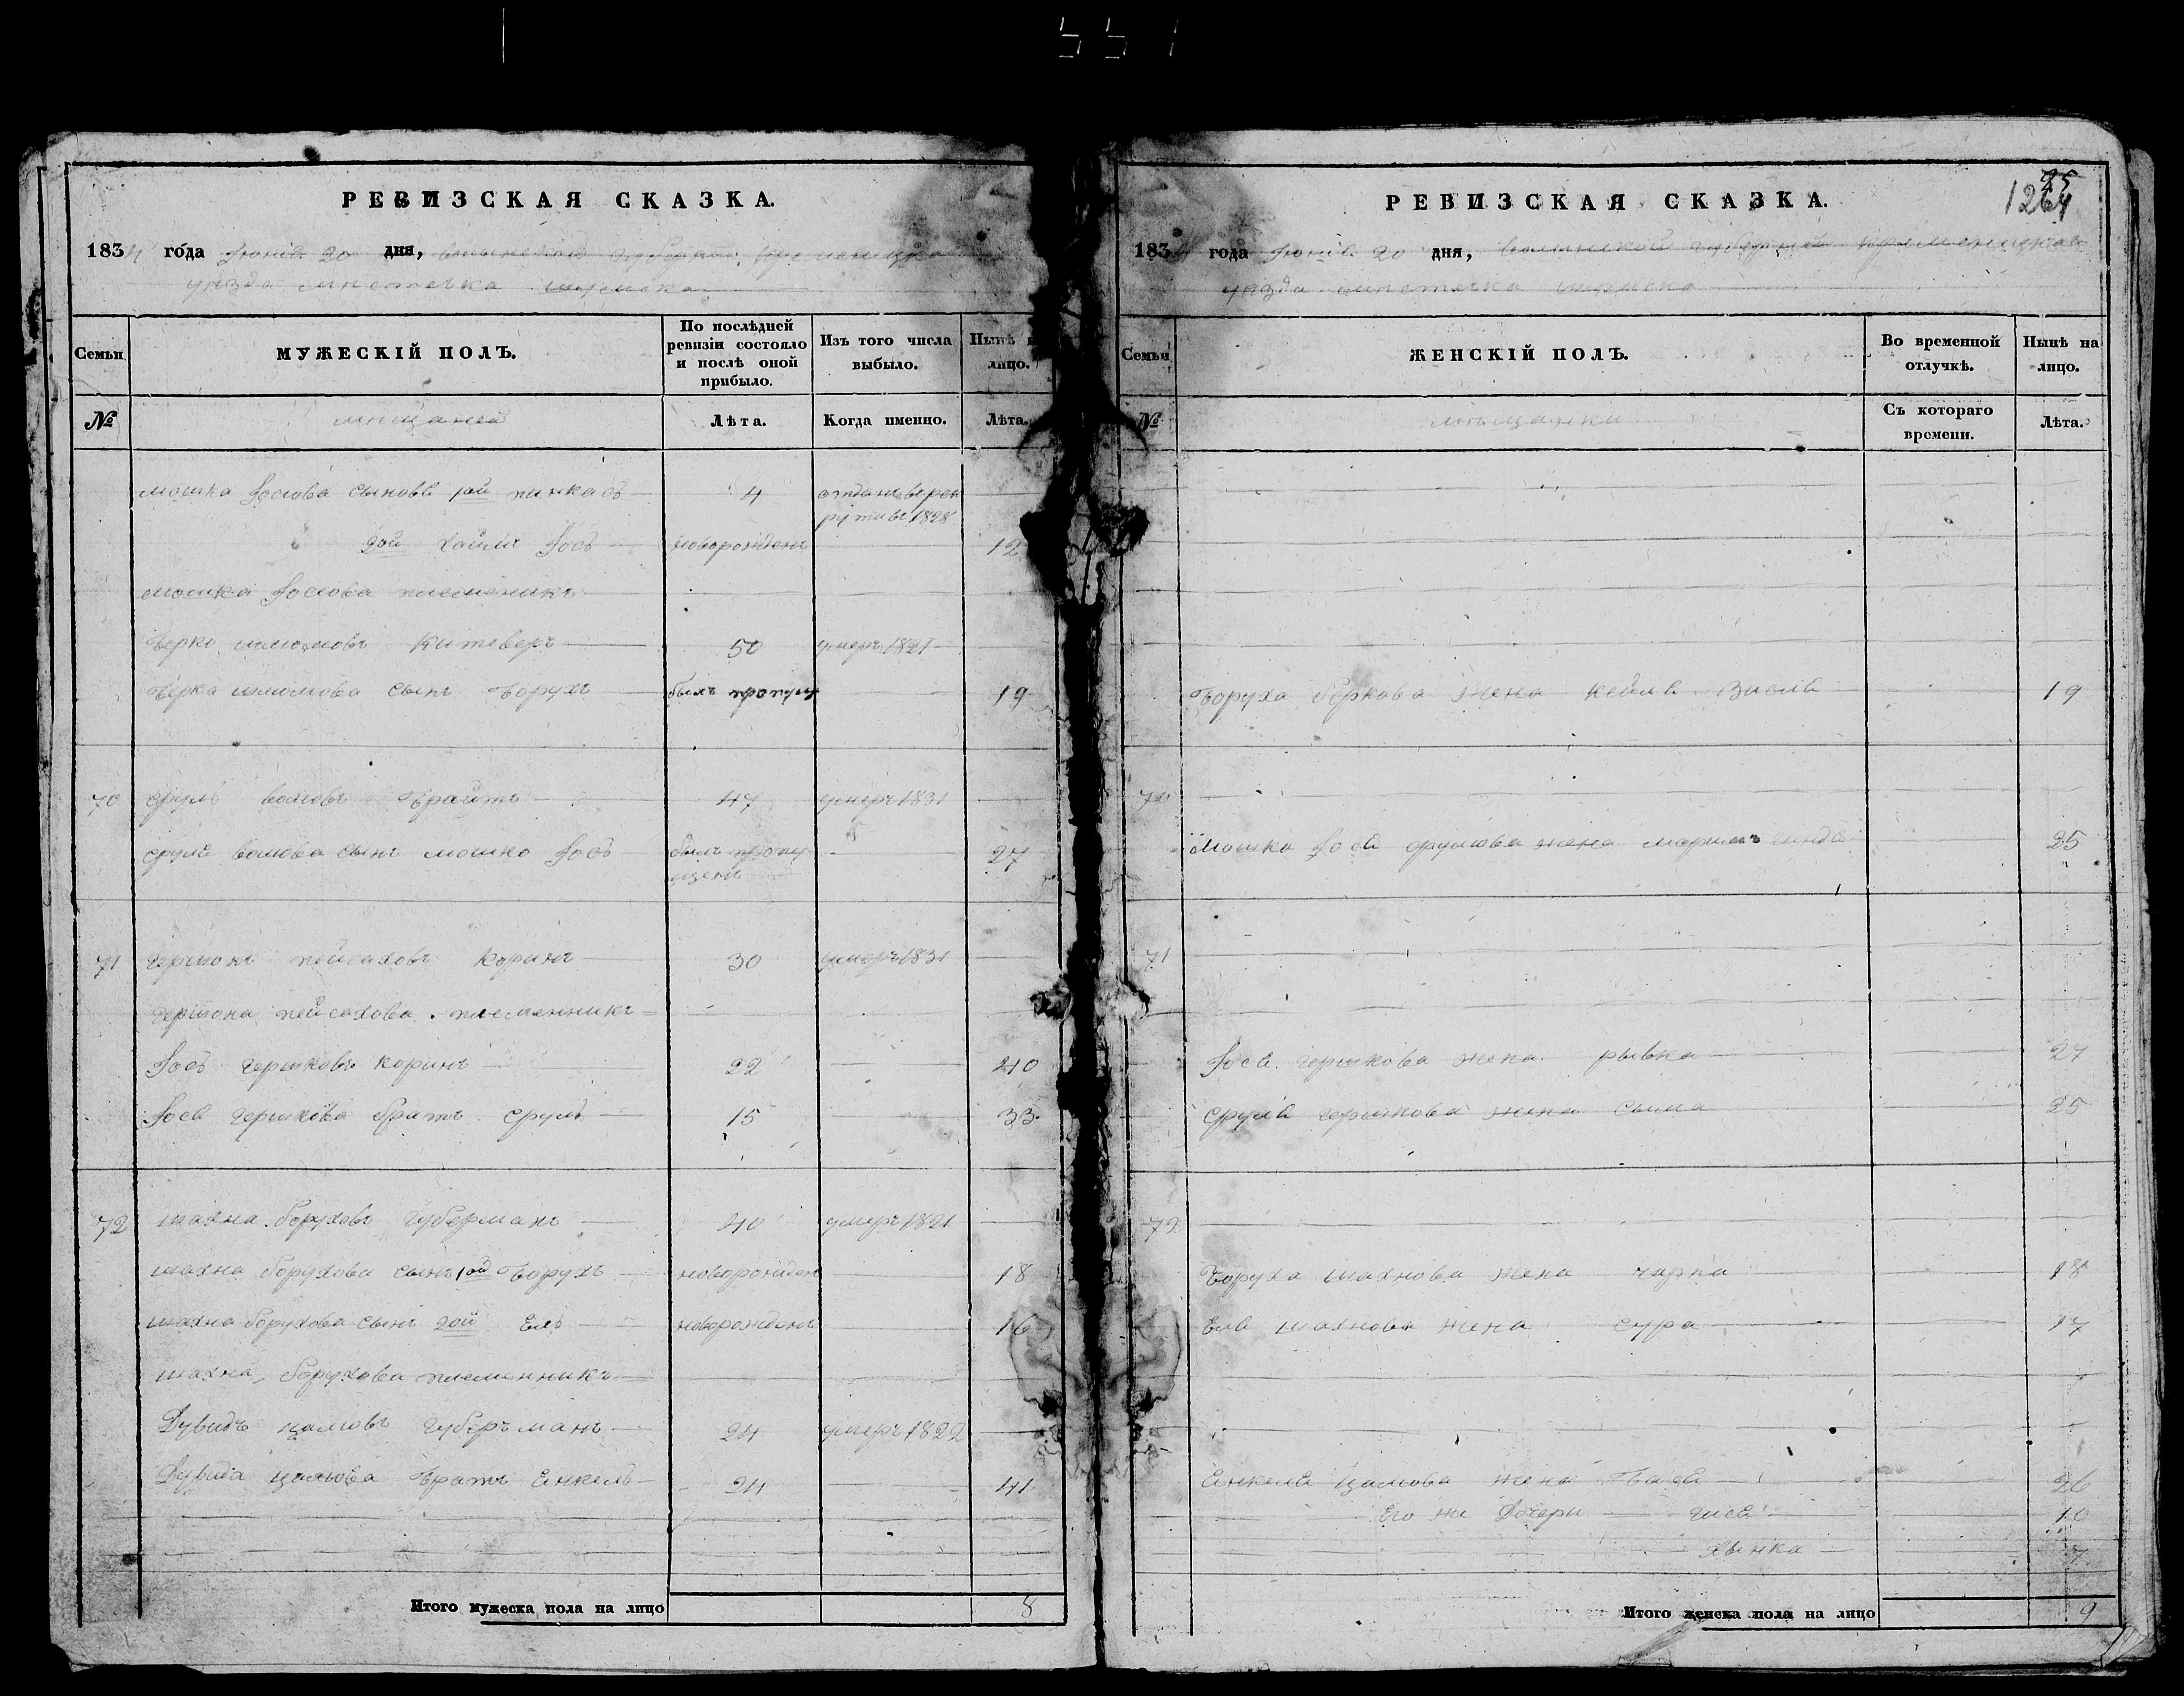 РЕВИЗСКАЯ СКАЗКА.
1834 года Іюня 20 дня, волынской губерніи, кременецкаго
уѣзда мѣстечка шумска
Семьи
МУЖЕСКІЙ ПОЛЪ.
По послѣдней ревизіи состояло и послѣ оной прибыло.
Изъ того числа выбыло.
Нынѣ на лицо.
№
мѣщанѣ
Лѣта.
Когда именно.
Лѣта.
мошка Іосіова сыновя 1ой пинкасъ 4 отданъ в рек
руты въ 1828
2ой хаимъ Іосъ новорожденъ 12
мошка Іосіова племеникъ
Берко шлiомовъ Китеверъ 50 умеръ 1821
Берка шлiомова сынъ Борухъ былъ пропущ 19
70 Сруль волiовъ Брайтъ 47 умеръ 1831
Сруля волiова сынъ мошко Іосъ былъ пропу 27
щенъ
71 Гершонъ пейсаховъ Коринъ 30 умеръ 1831
Гершона пейсахова племенникъ
Іосъ Гершковъ Коринъ 22 40
Іося Гершкова братъ Сруль 15 33
72 шахна боруховъ Губерманъ 40 умеръ 1821
шахна борухова сынъ 1ой Борухъ новорожден 18
шахна борухова сынъ 2ой Ель новорожденъ 16
шахна борухова племенникъ
Дувидъ цалiовъ Губерманъ 24 умеръ 1822
Дувида цалiова Братъ Енкель 24 41
Итого мужеска пола на лицо 8
25
1264
РЕВИЗСКАЯ СКАЗКА.
1834 года Іюня 20 дня, волынской губерніи кременецкаго
уѣзда мѣстечка шумска
Семьи
ЖЕНСКІЙ ПОЛЪ.
Во временной отлучкѣ.
Нынѣ на лицо.
№
мѣщанки
Съ котораго времени.
Лѣта.
Боруха беркова жена кейля 19
70
Мошка Іося срулiова жена 25
71
Іося Гершкова жена рывка 27
Сруля Гершкова жена 25
72
Боруха шахнова жена чарна 18
Еля шахнова жена сура 17
Енкеля цалiова жена Бася 26
Его же Дочери 10
хвенка 7
Итого женска пола на лицо 9